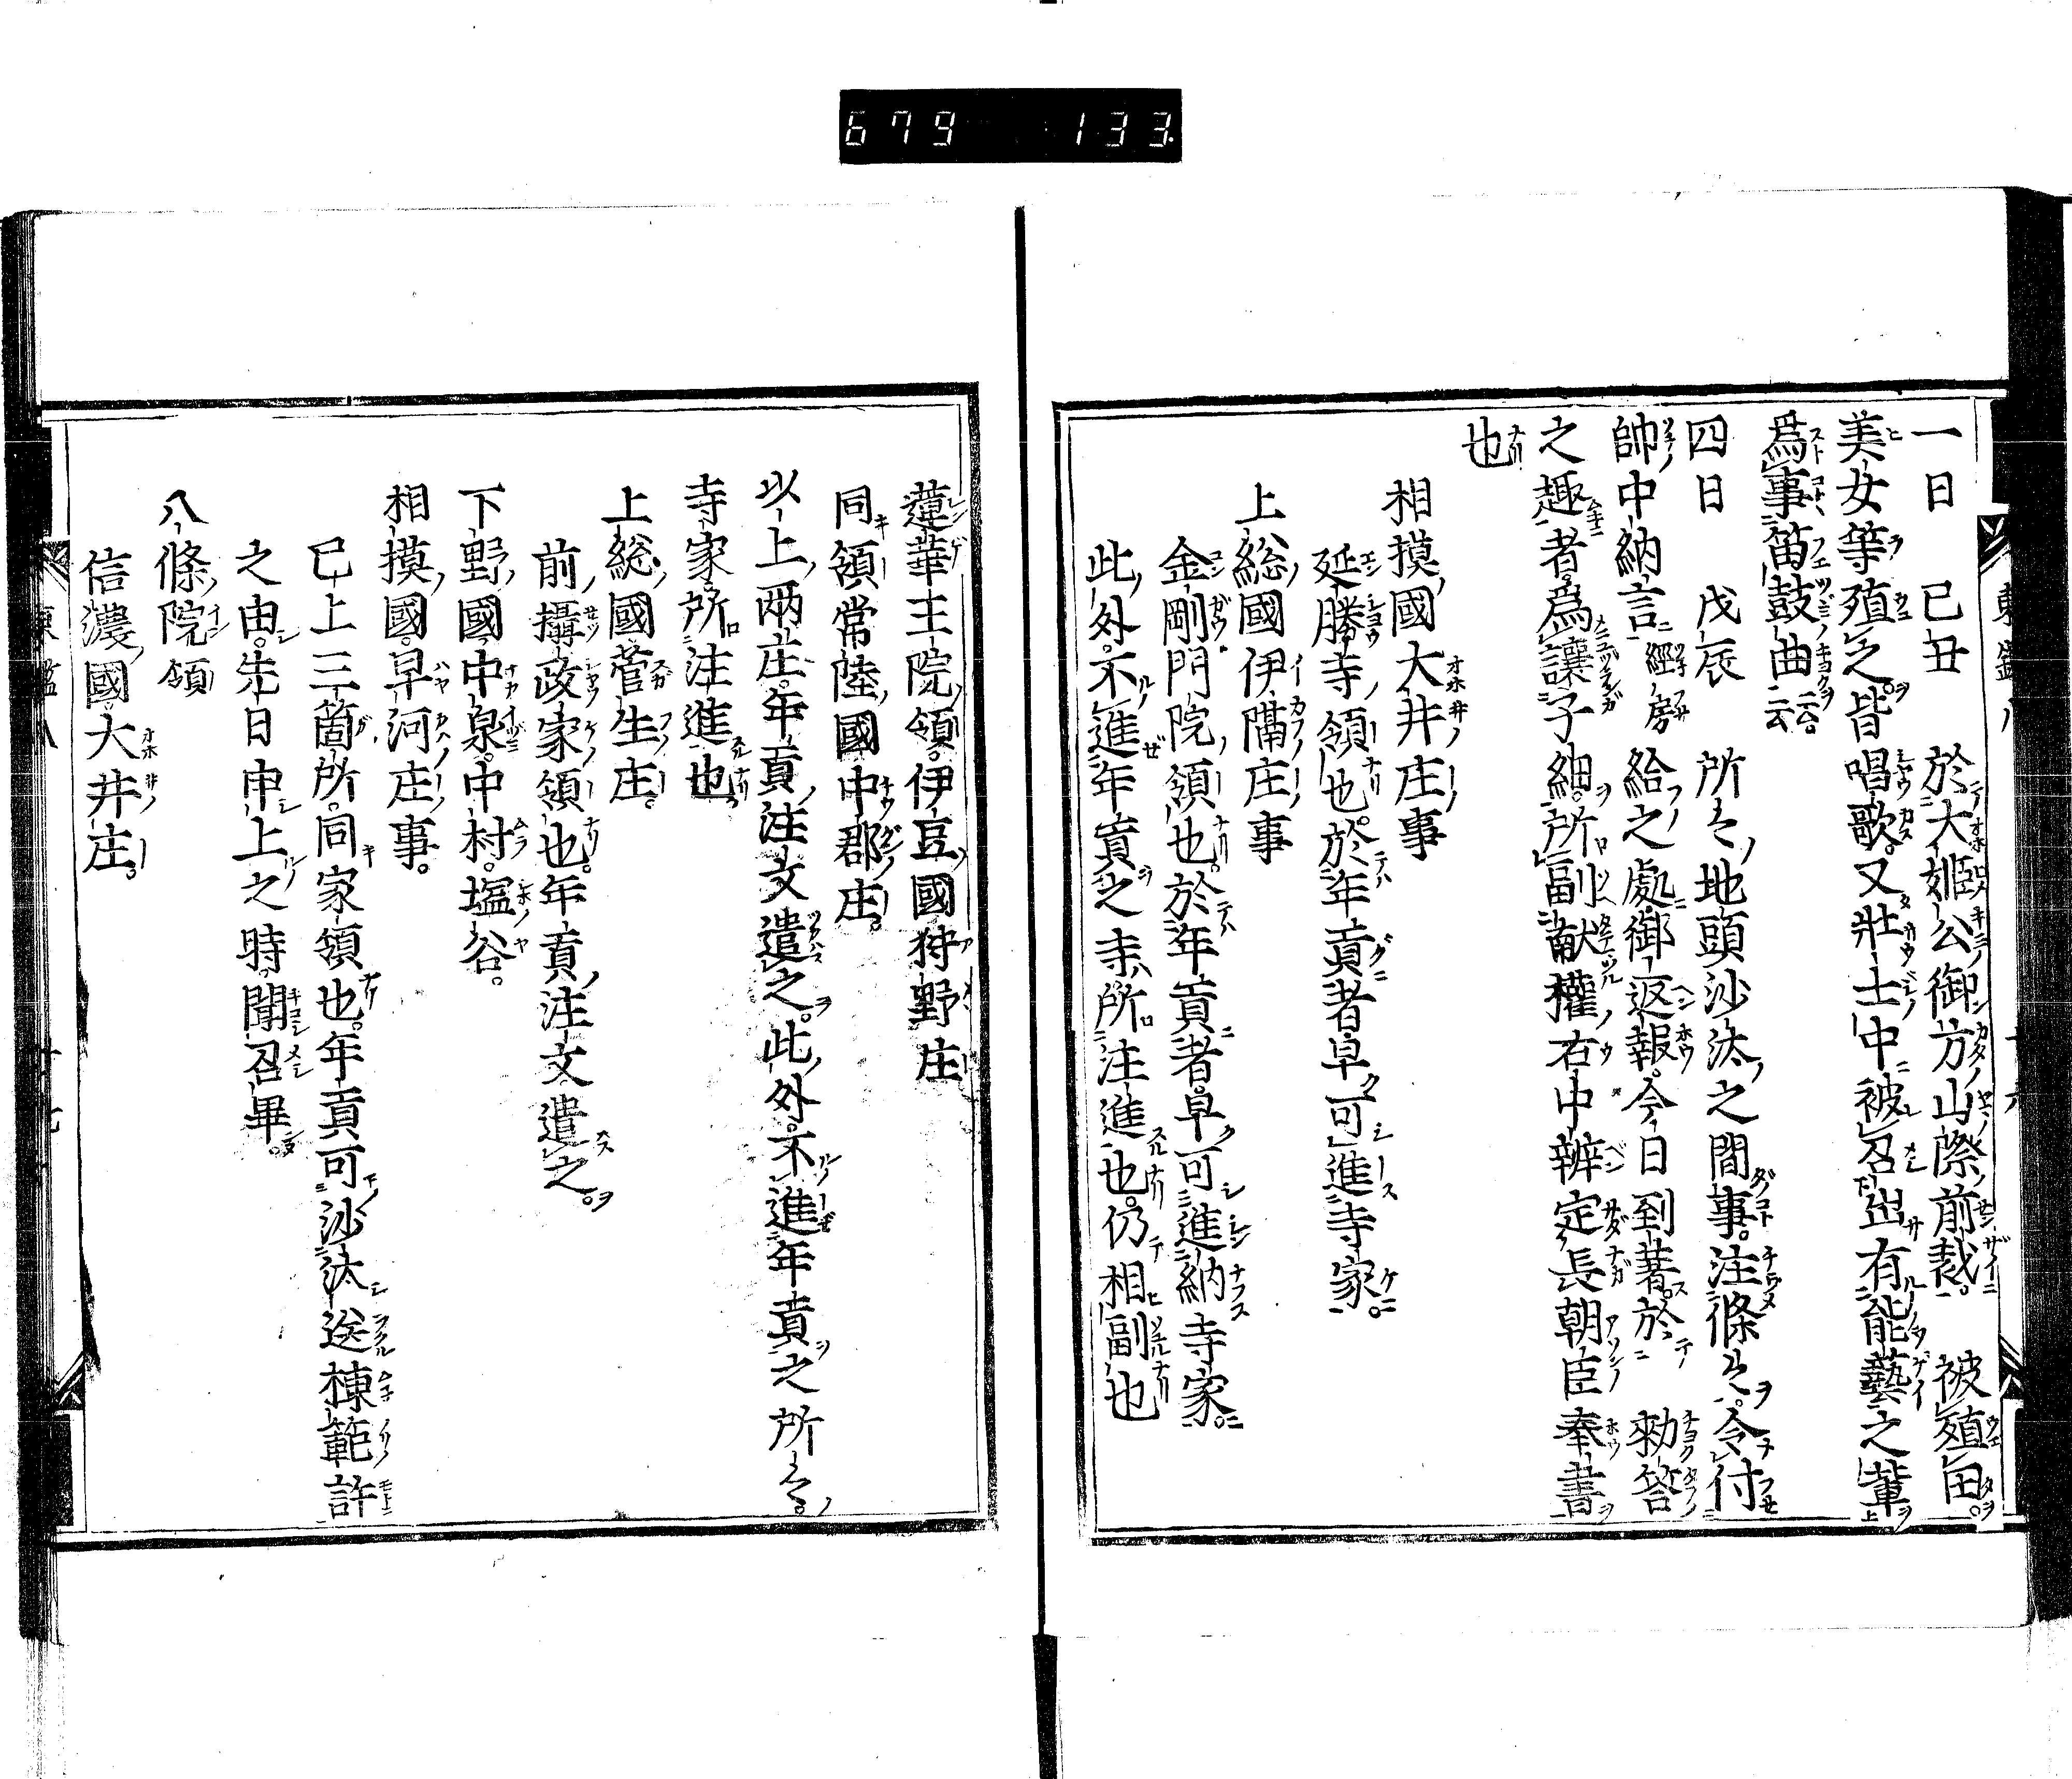 679 133
一日 己丑 於大姫公御方山際前裁 被殖田
美女等殖之皆唱歌又壯士中被召出有能藝之輩
爲事笛鼓曲云云
四日 戊辰 所々地頭沙汰之間事注條々令付
帥中納言經房給之處御返報今日到著於 勅答
之趣者爲讓子細所副献權右中辨定長朝臣奉書
也
相摸國大井庄事
延勝寺領也於年貢者早可進寺家
上総國伊隬庄事
金剛門院領也於年貢者早可進納寺家
此外不進年貢之寺所注進也仍相副也
蓮華王院領伊豆國狩野庄
同領常陸國中郡庄
以上兩庄年貢注文遣之此外不進年貢之所々
寺家所注進也
上総國菅生庄
前攝政家領也年貢注文遣之
下野國中泉中村塩谷
相摸國早河庄事
已上三箇所同家領也年貢可沙汰送棟範許
之由先日申上之時聞召畢
八條院領
信濃國大井庄